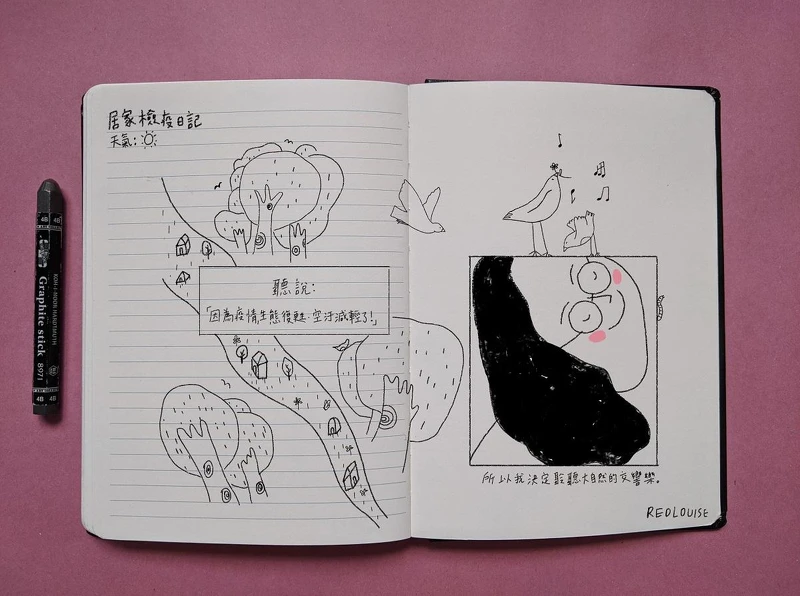 居家檢疫日記
天氣:
聽說:
「因為疫情,生態復甦·空汙減輕了!」
所以我決定聆聽大自然的交響樂。
REDLOUISE
4B 4B
KOH-I-NOOR HARDTMUTH
Graphite stick
8971
4B 4B